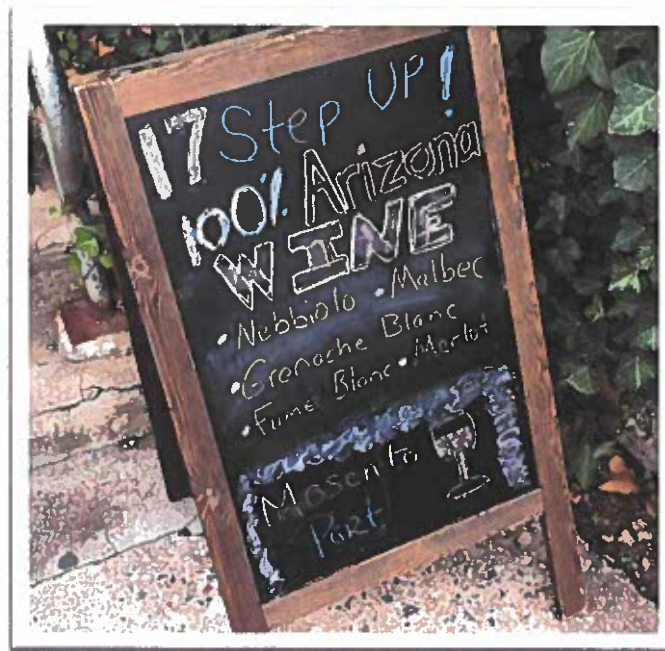 17 Step UP!
100% Arizona
WINE
• Nebbiolo • Malbec
• Grenache Blanc
• Fumé Blanc • Merlot
Masenta
Port